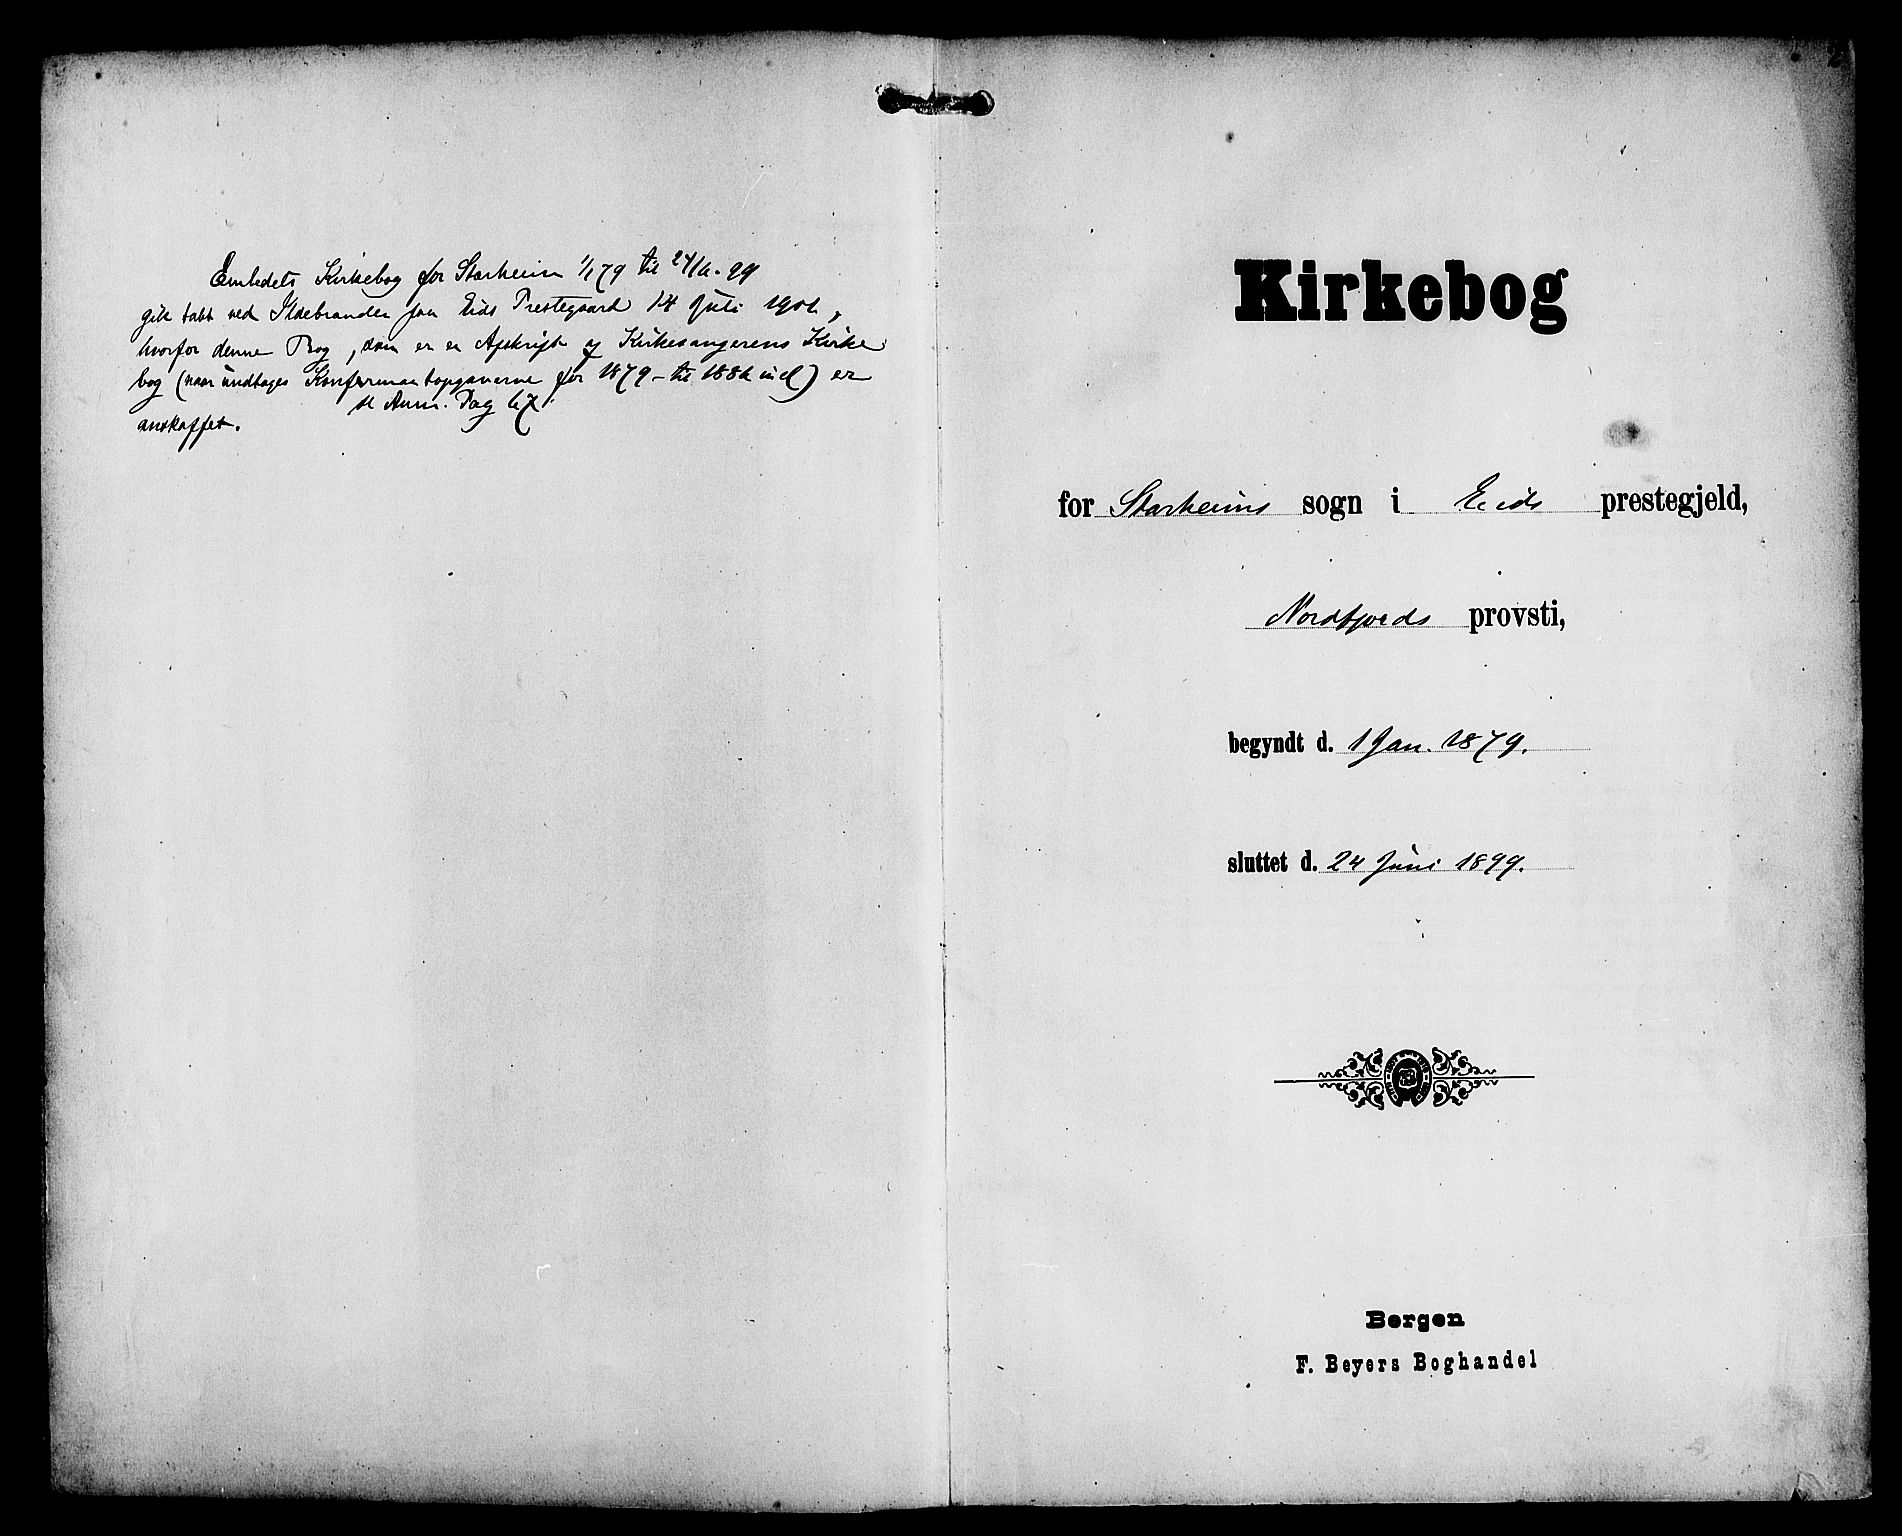 Embedets Kirkebog for Starheim 1/1 79 til 24/6 - 99
gik tabt ved Ildebranden paa Eids Prestegaard 14 Juli 1906,
hvorfor denne Bog, som er en Afskrift af Kirkesangerens Kirke
bog (naar undtages Konfirmantopgaverne for 1879 - til 1886 incl) er
se Anm. Pag 67.
anskaffet.
2
Kirkebog
for Starheims sogn i Eids prestegjeld,
Nordfjords provsti,
begyndt d. 1 Jan. 1879.
sluttet d. 24 Juni 1899.
Bergen
F. Beyers Boghandel